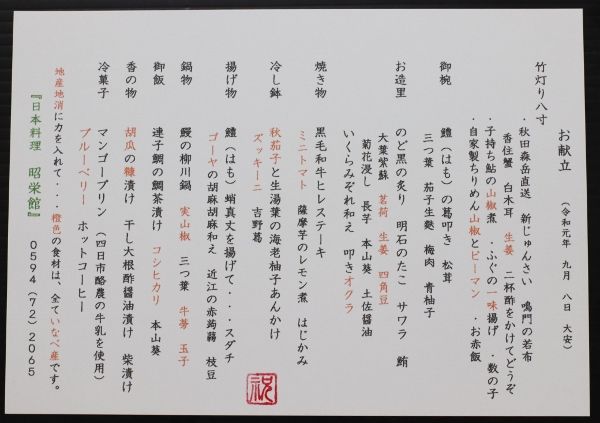 お献立 （令和元年 九月 八日 大安）
竹灯り八寸
・秋田森岳直送 新じゅんさい 鳴門の若布
香住蟹 白木耳 生姜 二杯酢をかけてどうぞ
・子持ち鮎の山椒煮 ・ふぐの一味揚げ ・数の子
・自家製ちりめん山椒とピーマン ・お赤飯
御椀 鱧（はも）の葛叩き 松茸
三つ葉 茄子生麩 梅肉 青柚子
お造里 のど黒の炙り 明石のたこ サワラ 鮪
大葉紫蘇 茗荷 生姜 四角豆
菊花浸し 長芋 本山葵 土佐醤油
いくらみぞれ和え 叩きオクラ
焼き物 黒毛和牛ヒレステーキ
ミニトマト 薩摩芋のレモン煮 はじかみ
冷し鉢 秋茄子と生湯葉の海老柚子あんかけ
ズッキーニ 吉野葛
揚げ物 鱧（はも）蛸真丈を揚げて・・・スダチ
ゴーヤの胡麻胡麻和え 近江の赤蒟蒻 枝豆
鍋物 鰻の柳川鍋 実山椒 三つ葉 牛蒡 玉子
御飯 連子鯛の鯛茶漬け コシヒカリ 本山葵
香の物 胡瓜の糠漬け 干し大根酢醤油漬け 柴漬け
冷菓子 マンゴープリン（四日市酪農の牛乳を使用）
ブルーベリー ホットコーヒー
地産地消に力を入れて・・・橙色の食材は、全ていなべ産です。
『日本料理 昭栄館』 0594（72）2065
祝